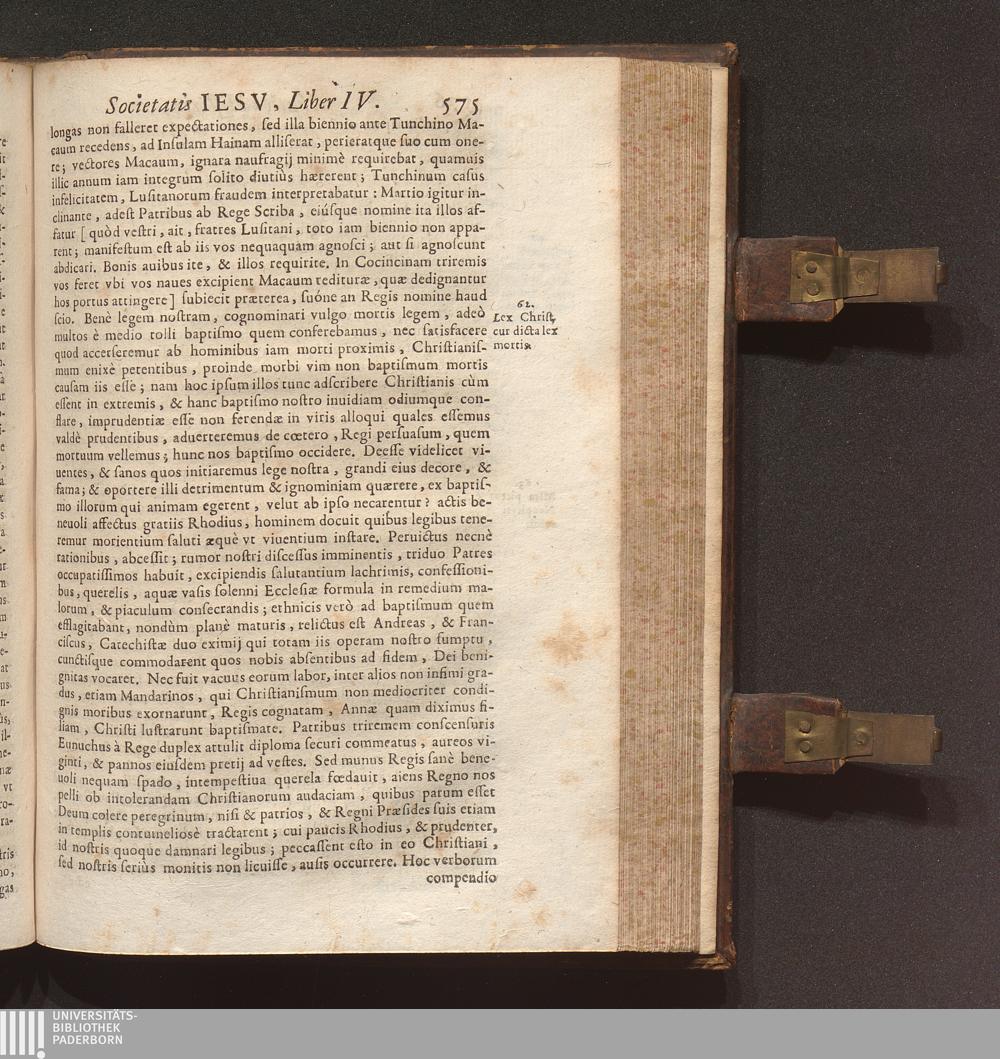 Societatis IESV, Liber IV. 575
longas non falleret expectationes, ſed illa biennio ante Tunchino Ma-
caum recedens, ad Inſulam Hainam alliſerat, perieratque ſuo cum one-
re; vectores Macaum, ignara naufragij minimè requirebat, quamuis
illic annum iam integrum ſolito diutiùs hærerent; Tunchinum caſus
infelicitatem, Luſitanorum fraudem interpretabatur: Martio igitur in-
clinante, adeſt Patribus ab Rege Scriba, eiúſque nomine ita illos af-
fatur [ quòd veſtri, ait, fratres Luſitani, toto iam biennio non appa-
rent; manifeſtum eſt ab iis vos nequaquam agnoſci; aut ſi agnoſcunt
abdicari. Bonis auibus ite, & illos requirite. In Cocincinam triremis
vos feret vbi vos naues excipient Macaum redituræ, quæ dedignantur
hos portus attingere] ſubiecit præterea, ſuóne an Regis nomine haud
ſcio. Benè legem noſtram, cognominari vulgo mortis legem, adeò
multos è medio tolli baptiſmo quem conferebamus, nec ſatisfacere
quod accerſeremur ab hominibus iam morti proximis, Chriſtianiſ-
mum enixè petentibus, proinde morbi vim non baptiſmum mortis
cauſam iis eſſe; nam hoc ipſum illos tunc adſcribere Chriſtianis cùm
eſſent in extremis, & hanc baptiſmo noſtro inuidiam odiumque con-
flare, imprudentiæ eſſe non ferendæ in viris alloqui quales eſſemus
valdè prudentibus, aduerteremus de cœtero, Regi perſuaſum, quem
mortuum vellemus; hunc nos baptiſmo occidere. Deeſſe videlicet vi-
uentes, & ſanos quos initiaremus lege noſtra, grandi eius decore, &
fama; & oportere illi detrimentum & ignominiam quærere, ex baptiſ-
mo illorum qui animam egerent, velut ab ipſo necarentur? actis be-
neuoli affectus gratiis Rhodius, hominem docuit quibus legibus tene-
remur morientium ſaluti æquè vt viuentium inſtare. Peruictus necnè
rationibus, abceſſit; rumor noſtri diſceſſus imminentis, triduo Patres
occupatiſſimos habuit, excipiendis ſalutantium lachrimis, confeſſioni-
bus, querelis, aquæ vaſis ſolenni Eccleſiæ formula in remedium ma-
lorum, & piaculum conſecrandis; ethnicis verò ad baptiſmum quem
efflagitabant, nondùm planè maturis, relictus eſt Andreas, & Fran-
ciſcus, Catechiſtæ duo eximij qui totam iis operam noſtro ſumptu,
cunctiſque commodarent quos nobis abſentibus ad fidem, Dei beni-
gnitas vocaret. Nec fuit vacuus eorum labor, inter alios non infimi gra-
dus, etiam Mandarinos, qui Chriſtianiſmum non mediocriter condi-
gnis moribus exornarunt, Regis cognatam, Annæ quam diximus fi-
liam, Chriſti luſtrarunt baptiſmate. Patribus triremem conſcenſuris
Eunuchus à Rege duplex attulit diploma ſecuri commeatus, aureos vi-
ginti, & pannos eiuſdem pretij ad veſtes. Sed munus Regis ſanè bene-
uoli nequam ſpado, intempeſtiua querela fœdauit, aiens Regno nos
pelli ob intolerandam Chriſtianorum audaciam, quibus parum eſſet
Deum colere peregrinum, niſi & patrios, & Regni Præſides ſuis etiam
in templis contumelioſè tractarent; cui paucis Rhodius, & prudenter,
id noſtris quoque damnari legibus; peccaſſent eſto in eo Chriſtiani,
ſed noſtris ſeriùs monitis non licuiſſe, auſis occurrere. Hoc verborum
compendio
62.
Lex Chriſt.
cur dicta lex
mortis.
UNIVERSITÄTS-
BIBLIOTHEK
PADERBORN